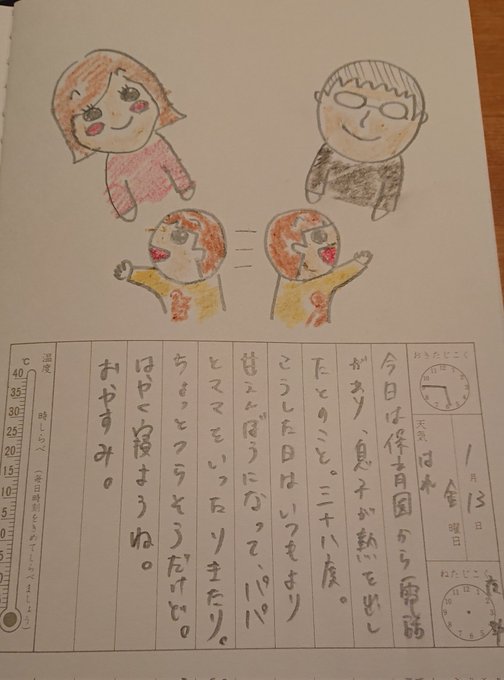 おきたじこく
1月13日
金曜日
天気
はれ
ねたじこく
今日は保育園から電話
があり、息子が熱を出し
たとのこと。三十八度。
こうした日はいつもより
甘えんぼうになって、パパ
とママをいったりきたり。
ちょっとつらそうだけど。
はやく寝ようね。
おやすみ。
温度
時しらべ
(毎日時刻をきめてしらべましょう)
℃
40
35
30
25
20
15
10
5